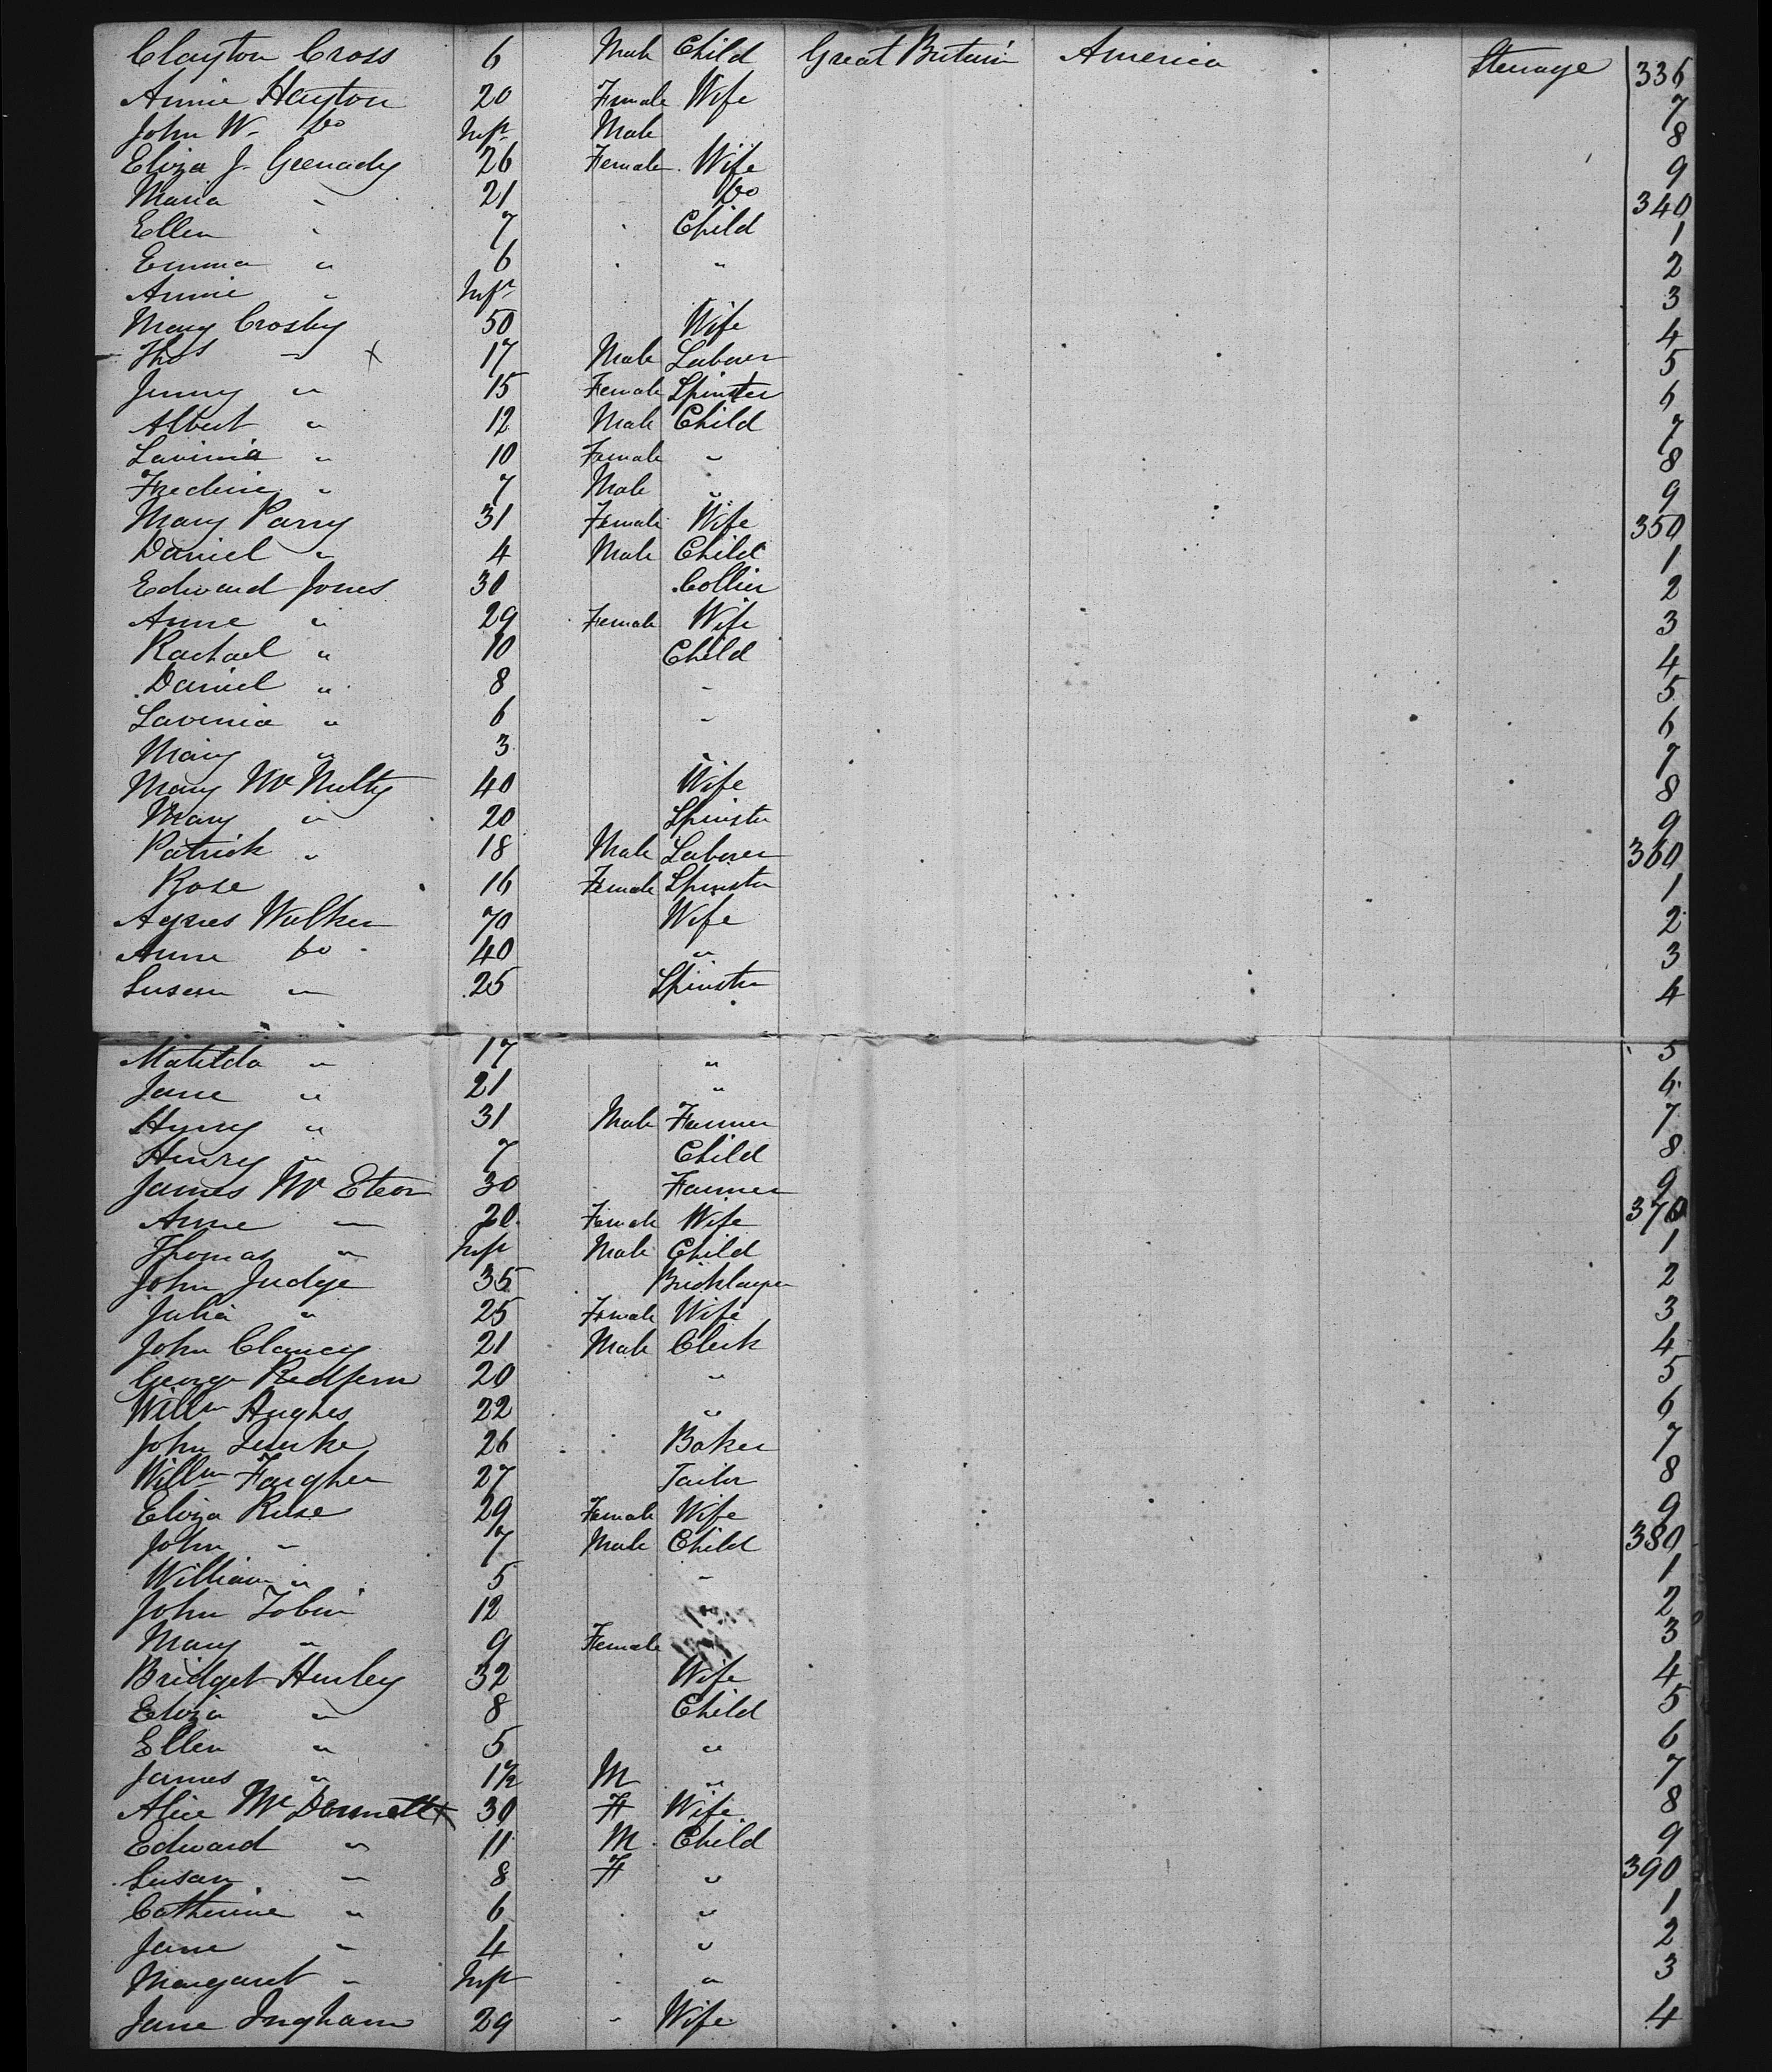 Clayton Cross 6 Male Child Great Britain America Steerage 336
Annie Hayton 20 Female Wife 7
John W. Do Inft Male 8
Eliza J. 26 Female Wife 9
Maria " 21 Do 340
Ellen " 7 Child 1
Emma " 6 " 2
Annie " Inft 3
Mary Crosby 50 Wife 4
Thos " x 17 Male Laborer 5
Jenny " 15 Female Spinster 6
Albert " 12 Male Child 7
Lavinia " 10 Female " 8
Frederic " 7 Male " 9
Mary Parry 31 Female Wife 350
Daniel " 4 Male Child 1
Edward Jones 30 Collier 2
Anne " 29 Female Wife 3
Rachael " 10 Child 4
Daniel " 8 " 5
Lavinia " 6 " 6
Mary " 3 " 7
Mary McNulty 40 Wife 8
Mary " 20 Spinster 9
Patrick " 18 Male Laborer 360
Rose 16 Female Spinster 1
Agnes Walker 70 Wife 2
Anne Do 40 " 3
Susan " 25 Spinster 4
Matilda " 17 " 5
Jane " 21 " 6
Henry " 31 Male Farmer 7
Henry " 7 Child 8
James Mc 30 Farmer 9
Anne " 20 Female Wife 370
Thomas " Inft Male Child 1
John Judge 35 Bricklayer 2
Julia " 25 Female Wife 3
John Clancy 21 Male Clerk 4
George Redfern 20 " 5
Willm Hughes 22 " 6
John 26 Baker 7
Willm Fargher 27 Tailor 8
Eliza Rise 29 Female Wife 9
John " 7 Male Child 380
William " 5 " 1
John Tobin 12 " 2
Mary " 9 Female 3
Bridget Henley 32 Wife 4
Eliza " 8 Child 5
Ellen " 5 " 6
James " 1½ M " 7
Alice McDermott x 30 F Wife 8
Edward " 11 M Child 9
Susan " 8 F " 390
Catherine " 6 " 1
Jane " 4 " 2
Margaret " Inft " 3
Jane Ingham 29 " Wife 4